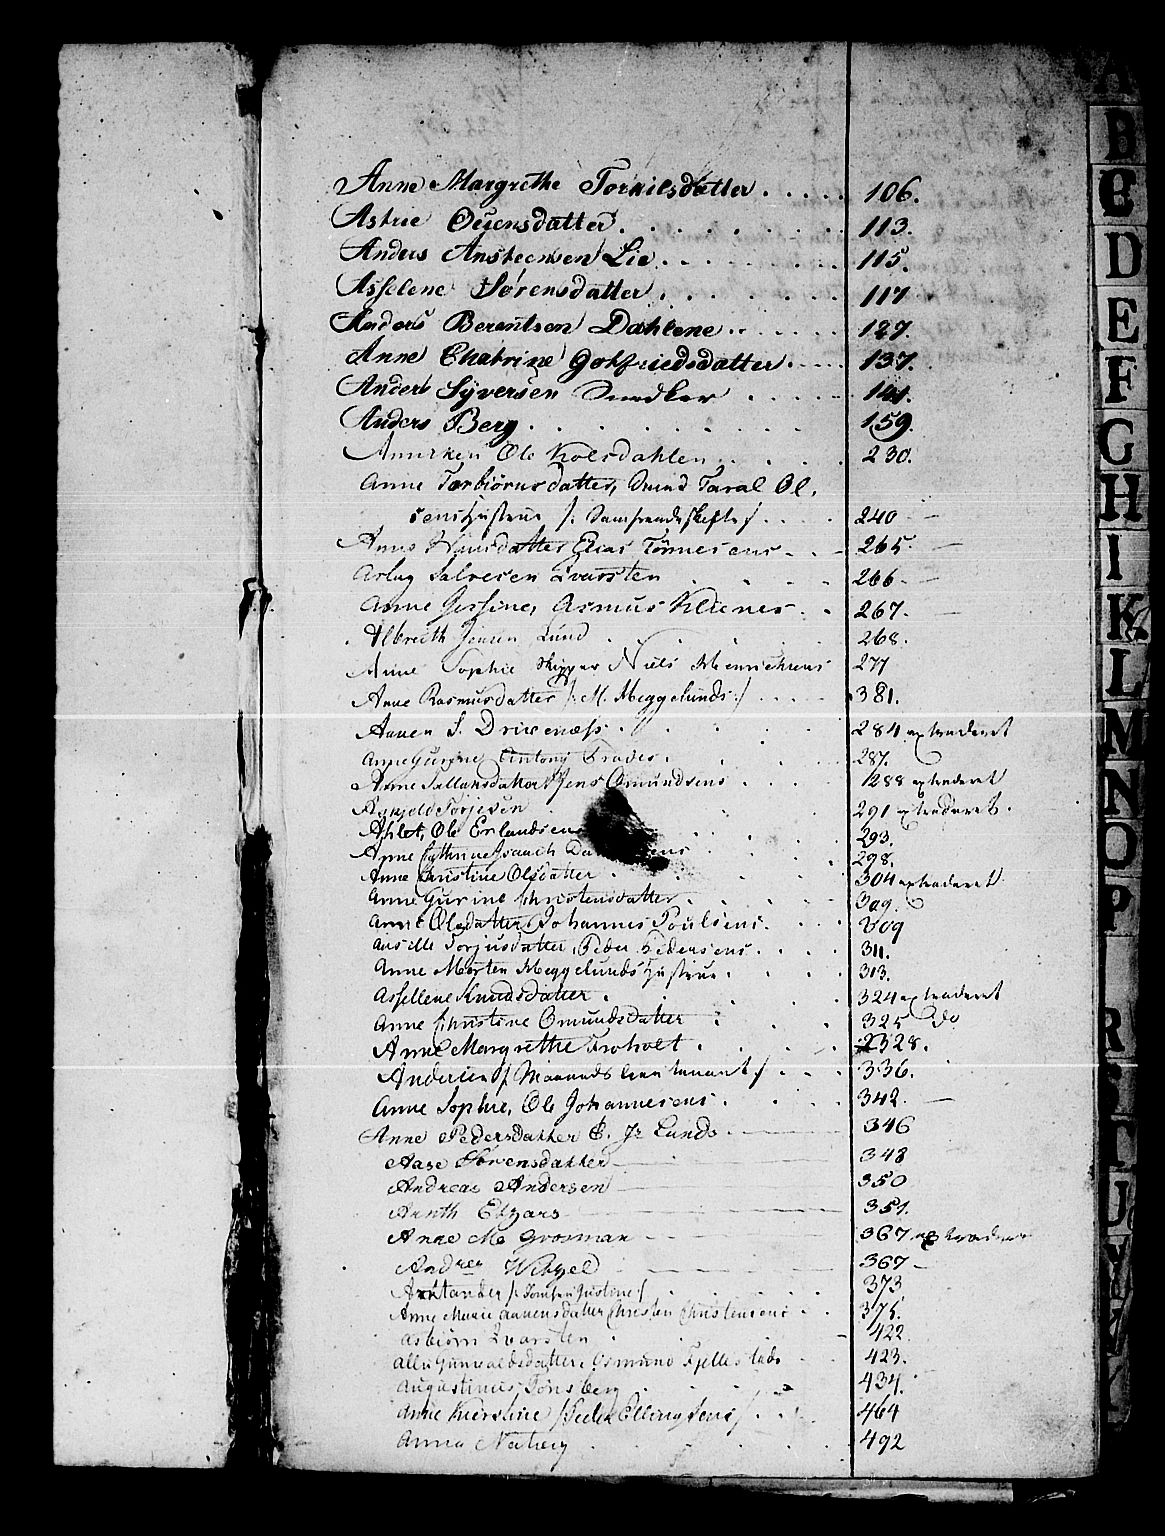 Anne Margrethe Torkilsdatter . . . . . 106.
Astrie Ouensdatter . . . . . 113.
Anders Ansteensen Lie . . . . . 115.
Asselene Sørensdatter . . . . . 117
Anders Berentsen Dahlene . . . . . 127.
Anne Chatrine Gotfriedsdatter . . . . 137.
Anders Syversen Smedker . . . . . 141.
Anders Berg . . . . . 159.
Ole Kolsdahlen . . . . 230.
Anne Torbiørnsdatter, Svend Taral Ol.
sens Hustrue /: Samfrændeskifte / . . . . 240
Anne Hansdatter Elias Tønnesens . . . 265.
Aslag Salvesen Qvarsten . . . . 266.
Anne Gessine, Asmus Kliener . . 267.
Albrecth Jensen Lund . . . . 268.
Anne Sophie Skipper Niels Henrichsens 277
Anne Rasmusdatter /: M. Meggelunds :/ . . . . 381.
S. Drivenæss . . . . 284 extraderet
Anne Gurine Antony Trades . . . . 287.
Anne Jens Omundsens . . . . 288 extraderet
Torjesen . . . 291 extraderet.
Ole Erlandsens . . . 293.
Anne Cathrine . . . . 298.
Anne Christine Olsdatter . . . . 304 extraderet
Anne Gurine Christensdatter . . . . 309.
Anne Olsdatter, Johannes Poulsens . . . . 309
Torjusdatter, Peder Pedersens . . . . 311.
Anne Morten Meggelunds Hustrue . . . . 313.
Assellene Knudsdatter . . . . 324 extraderet
Anne Christine Omundsdatter . . . . 325 do
Anne Margrethe Froholt . . . . 328.
Andersen / Maaneds Lieutenant / . . . 336.
Anne Sophie, Ole Johannesens . . . . 342.
Anne Pedersdatter C. Jr Lunds . 346
Aase Sørensdatter 348
Andreas Andersen 350
Elgars 351.
Anne Ma Grosman 367 extraderet
Andreas Wetzel 367
/: Jomfru Justine / 373
Anne Marie Aanensdatter Christen Christensens . . 375.
Asbiørn Qvarsten . . . . 422
Gunvaldsdatter, Osmund Fjellestads . . 423.
Augustinus Tønsberg . . . . 434.
Anne Kierstine / Peder Ellingsens / . . . 464
Anna Neberg . . . . 492
A
B
C
D
E
F
G
H
I
K
L
M
N
O
P
R
S
T
U